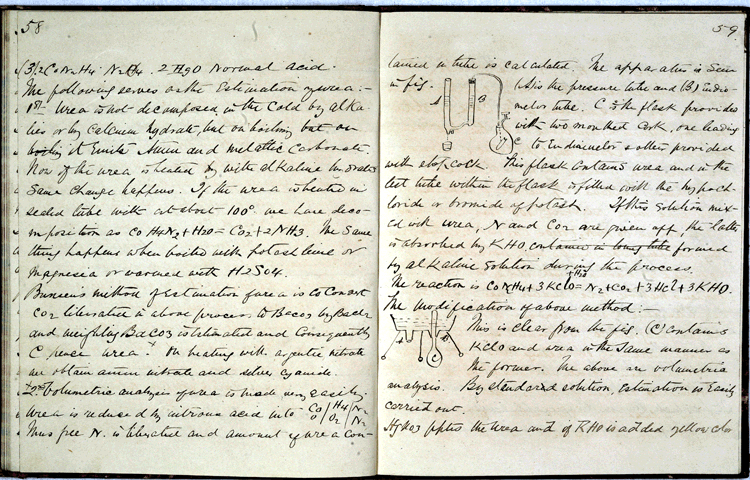 58
(3) 2CoN2H4 N2H4. 2HgO Normal acid.
The following serves as the Estimation of urea:-
1st Urea is not decomposed in the Cold by alka-
lies or by Calcium hydrate, but on boiling but on
boiling it Emits Amm and metallic Carbonate.
Now if the urea is heated by with alkaline hydrates
Same change happens. If the urea is heated in
sealed tube with at about 100° we have deco-
mposition as CoH4N2+H2O=Co2+2NH3. The Same
thing happens when boiled with potash lime or
Magnesia or warmed with H2SO4.
Bunsen's method of Estimation of urea is to Convert
Co2 liberated in above process to BaCo3 by Bacl2
and weighing BaCO3 is Estimated and Consequently
C hence urea. On heating with argentic nitrate
we obtain amm nitrate and silver cyanide.
2nd. Volumetric analysis of urea is made very Easily.
Urea is reduced by nitrous acid into
Thus free N. is liberated and amount of urea con-
59
tained in tube is calculated. The apparatus is Seen
in fig. (A) is the pressure tube and (B) Eudio-
A B
meter tube. C is the flask provided
with two mouthed Cork, one leading
C to Eudiometer & other provided
with stop cock. This flask Contains urea and in the
test tube within the flask is filled with the hypoch-
loride or bromide of potash. If this Solution mix-
ed with urea, N and Co2 are given off, the latter
is absorbed by KHO, contained in long tube formed
by alkaline Solution during the process.
The reaction is CoN2H4+3KClO = N2+Co2+3HCl+3KHO.
The modification of above method:-
This is clear from the fig. (C) contains
KClO and urea in the Same manner as
the former. The above are volumetric
analysis. By standard solution, estimation is Easily
carried out.
HgNO3 pptes the urea and if KHO is added yellow clo